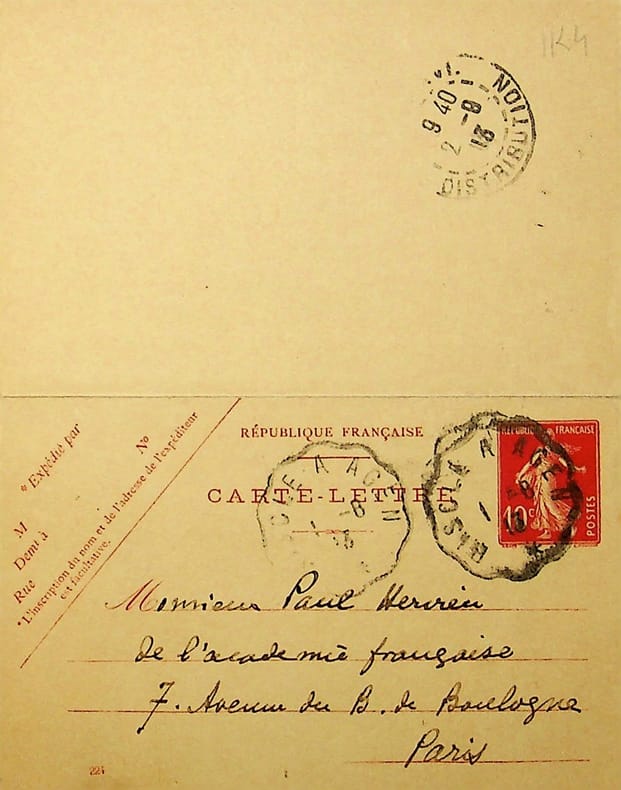 DISTRIBUTION
9 40
2 - 8
13
* Expédié par
M
Demt à
Rue
No
* L'inscription du nom et de l'adresse de l'expéditeur
est facultative.
RÉPUBLIQUE FRANÇAISE
CARTE-LETTRE
A AGEN
1 - 8
13
RISCLE A AGEN
1 - 8
13
RÉPUBLIQUE FRANÇAISE
10c
POSTES
Monsieur Paul Hervieu
de l'academie française
7. Avenue du B. de Boulogne
Paris
224